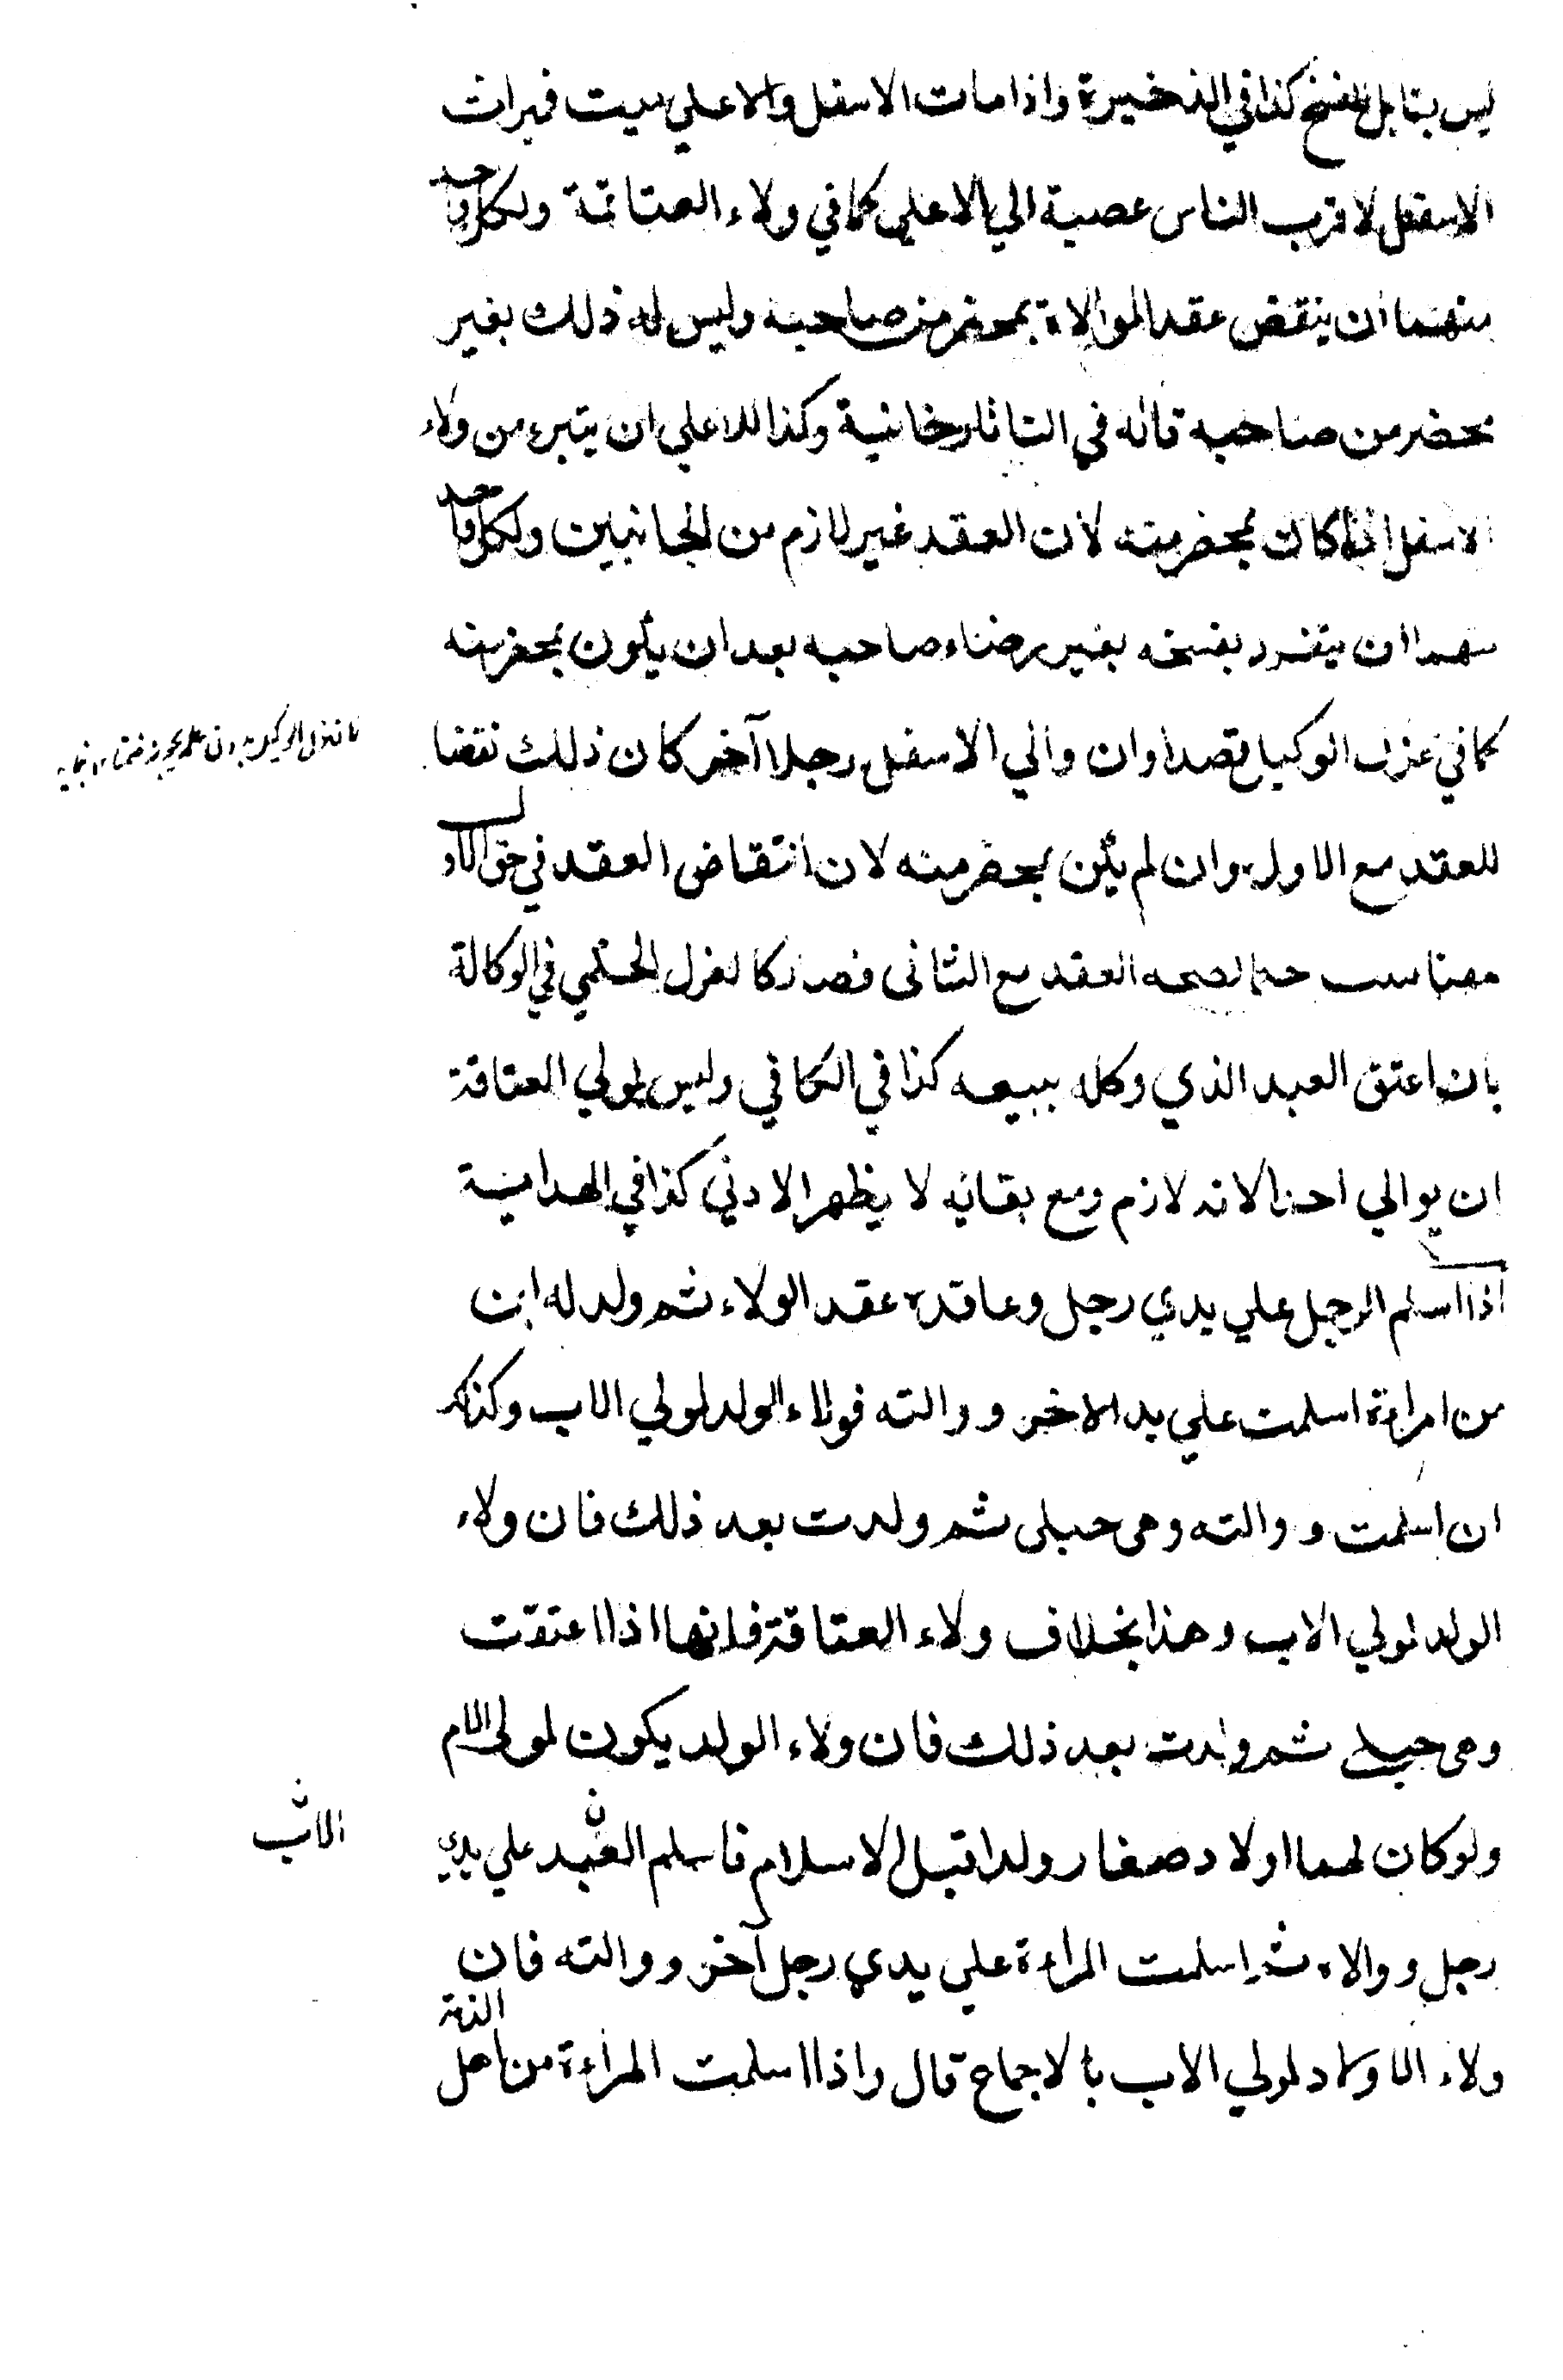 ليس بقابل للفسخ كذا في الذخيرة واذا مات الاسفل والاعلي ميت فميراث
الاسفل لاقرب الناس عصبة الي الاعلي كما في ولاء العتاقة ولكل واحد
منهما ان ينقض عقد الموالاة بمحضر من صاحبه وليس له ذلك بغير
محضر من صاحبه قاله في التاتارخانية وكذا للاعلي ان يتبرء من ولاء
الاسفل اذا كان بمحضر منه لان العقد غير لازم من الجانبين ولكل واحد
منهما ان يتفرد بفسخه بغير رضاء صاحبه بعد ان يكون بمحضر منه
كما في عزل الوكيل قصدا وان والي الاسفل رجلا آخر كان ذلك نقضا
للعقد مع الاول وان لم يكن بمحضر منه لان انتقاض العقد في حق الاول
حكما لصحه العقد مع الثانى فصار كالعزل الحكمي في الوكالة
بان اعتق العبد الذي وكله ببيعه كذا في الكافي وليس لمولي العتاقة
ان يوالي احدا لانه لازم ومع بقائه لا يظهر الادني كذا في الهداية
اذا اسلم الرجل علي يدي رجل وعاقده عقد الولاء ثم ولد له ابن
من امراءة اسلمت علي يد الاخر ووالته فولاء الولد لمولي الاب وكذلك
ان اسلمت ووالته وهى حبلى ثم ولدت بعد ذلك فان ولاء
الولد لمولي الاب وهذا بخلاف ولاء العتاقة فانها اذا اعتقت
وهى حبلى ثم ولدت بعد ذلك فان ولاء الولد يكون لمولى الام
ولو كان لهما اولاد صغار ولدا قبل الاسلام فاسلم العبد علي يدي
الاب
رجل ووالاه ثم اسلمت المراءة علي يدي رجل آخر ووالته فان
ولاء الاولاد لمولي الاب بالاجماع قال واذا اسلمت المراءة من اهل الذمة